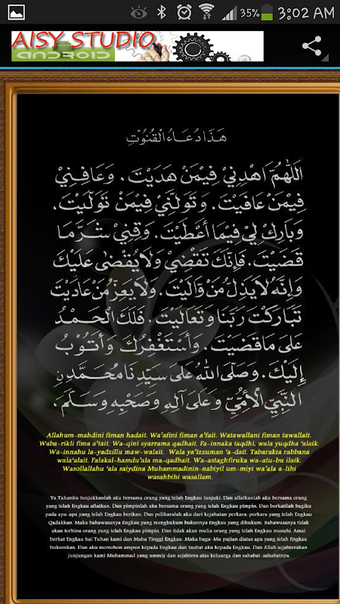 3:02 AM
35%
AISY STUDIO
ANDROID
هَذَا دُعَاءُ الْقُنُوْتِ
اَللّٰهُمَّ اهْدِنِيْ فِيْمَنْ هَدَيْتَ . وَعَافِنِيْ
فِيْمَنْ عَافَيْتَ . وَتَوَلَّنِيْ فِيْمَنْ تَوَلَّيْتَ .
وَبَارِكْ لِيْ فِيْمَا أَعْطَيْتَ . وَقِنِيْ شَرَّ مَا
قَضَيْتَ . فَإِنَّكَ تَقْضِيْ وَلَا يُقْضٰى عَلَيْكَ
وَإِنَّهُ لَا يَذِلُّ مَنْ وَالَيْتَ . وَلَا يَعِزُّ مَنْ عَادَيْتَ
تَبَارَكْتَ رَبَّنَا وَتَعَالَيْتَ . فَلَكَ الْحَمْدُ
عَلَى مَا قَضَيْتَ . وَأَسْتَغْفِرُكَ وَأَتُوْبُ
إِلَيْكَ . وَصَلَّى اللهُ عَلَى سَيِّدِنَا مُحَمَّدِنِ
النَّبِيِّ الْأُمِّيِّ وَعَلَى آلِهِ وَصَحْبِهِ وَسَلَّمَ .
Allahum-mahdini fiman hadait. Wa'afini fiman a'fait. Watawallani fiman tawallait.
Waba-rikli fima a'tait. Wa-qini syarrama qadhait. Fa-innaka taqdhi, wala yuqdha 'alaik.
Wa-innahu la-yadzillu maw-walait. Wala ya'izzuman 'a-dait. Tabarakta rabbana
wata'alait. Falakal-hamdu'ala ma-qadhait. Wa-astaghfiruka wa-atu-bu ilaik.
Wasollallahu 'ala saiydina Muhammadinin-nabiyil um-miyi wa'ala a-lihi
wasahbihi wasallam.
Ya Tuhanku tunjukkanlah aku bersama orang yang telah Engkau tunjuki. Dan afiatkanlah aku bersama orang
yang telah Engkau afiatkan. Dan pimpinlah aku bersama orang yang telah Engkau pimpin. Dan berkatilah bagiku
pada apa-apa yang telah Engkau berikan. Dan peliharalah aku dari kejahatan perkara-perkara yang telah Engkau
Qadakkan. Maka Bahawasanya Engkau yang menghukum bukannya Engkau yang dihukum. Bahawasanya tidak
akan terhina orang yang telah Engkau pimpin. Dan tidak akan mulia orang yang telah Engkau musuhi. Amat
berkat Engkau hai Tuhan kami dan Maha Tinggi Engkau. Maka bagi-Mu pujian diatas apa yang telah Engkau
hukumkan. Dan aku memohon ampun kepada Engkau dan taubat aku kepada Engkau. Dan Allah sejahterakan
junjungan kami Muhammad yang ummiy dan sejahtera atas keluarga dan sahabat-sahabatnya.